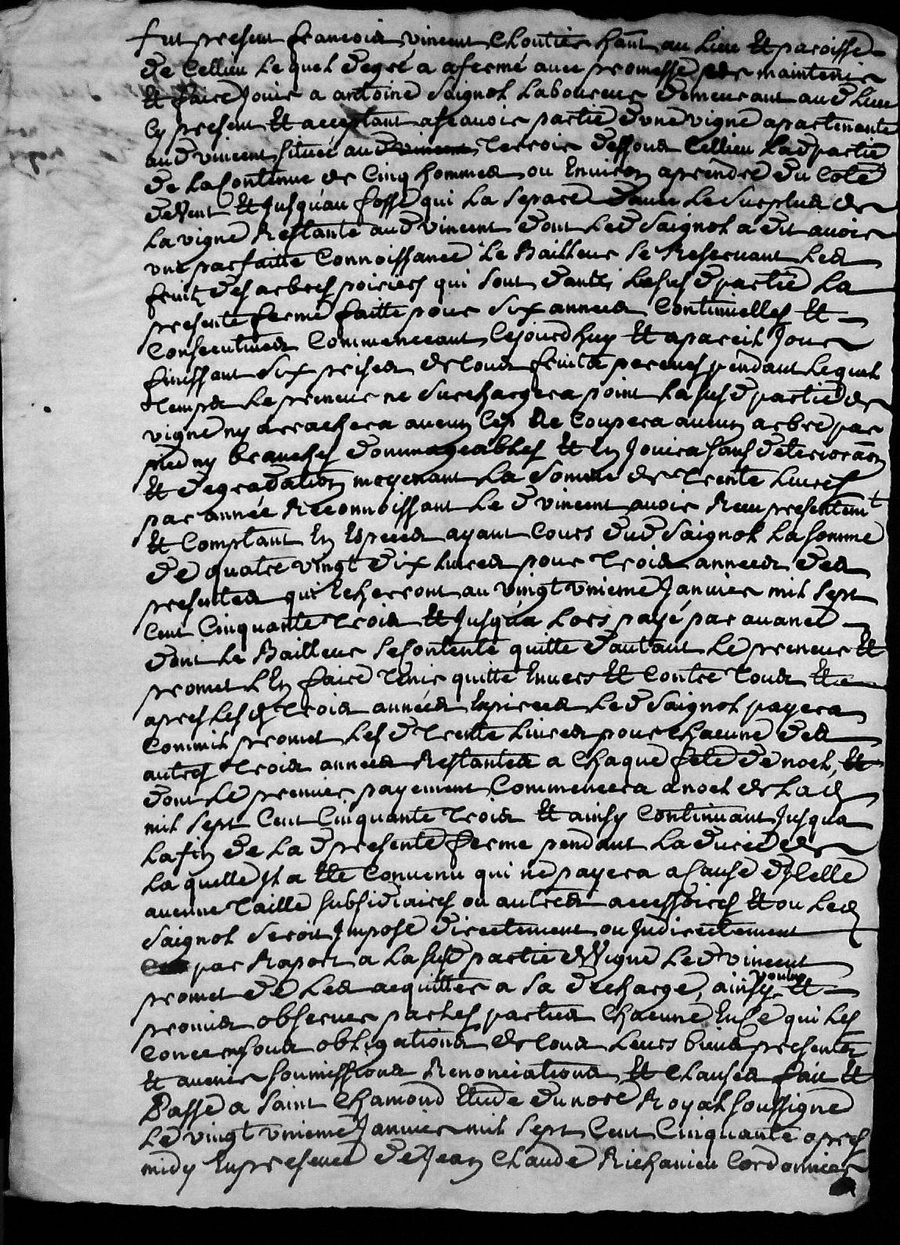 fut present francois vincent Cloutier hant au lieu Et paroisse
de Cellieu Lequel de gré a afermé avec promesse de maintenir
Et faire Jouir a antoine Saignol Laboureur demeurant aud Lieu
Cy present Et acceptant ascavoir partie d'une vigne apartenente
aud vincent situeé aud Terroir dessous Cellieu Lad partie
de La Contenue de Cinq hommeés ou Environ aprendre du Coté
de Vent Et Jusqu'au fossé qui La separe Le Surplus de
La vigne Restante aud vincent dont Led Saignol a dit avoir
une parfaitte Connoissance Le Bailleur se Reservant Les
fruits des arbres poiriers qui sont dans Lasusd partie La
presente ferme faitte pour Six années Continuelles Et
Consecutives Commenceant Cejourdhuy Et apareil Jour
finissant Six prises de tous fruits perceus pendant Lequel
temps Le preneur ne Surchargera point Lasusd partie de
vigne ny arrachera aucun Cep Ne Coupera aucun arbre par
pied ny branches dommageables Et En Jouira sans deterioraon
Et degradation moyenant La Somme de trente Livres
par année Reconnoissant Le d vincent avoir Receu presentemt
Et Comptant En Especes ayant Cours dud Saignol La somme
de quatre vingt dix Livres pour trois années des
presentes qui Echerront au vingt unieme Janvier mil sept
Cent Cinquante trois Et Jusqu'a Lors payé par avance
dont Le Bailleur se Contente quitte d'autant Le preneur Et
promet L'En faire tenir quitte Envers Et Contre tous Et
apres Les d trois années Expirées Le d Saignol payera
Comm'il promet Les d trente Livres pour Chacune des
autres trois années Restantes a Chaque fete de noel, Et
dont Le premier payement Commencera a noel de Lad
mil sept Cent Cinquante trois Et ainsy Continuant Jusqua
La fin de La d presente ferme pendant La durée de
La quelle Il a Eté Convenu qui ne payera a Cause d'Icelle
aucune taille subsidiaires ou autres accessoires Et ou Led
Saignol seroit Imposé directement ou Indirectement
par Raport a La susd partie de Vigne Le d vincent
promet de Les acquitter a Sa decharge, ainsy voulu Et
promis observer par Les parties Chacune En Ce qui Les
Concerne sous obligations de tous Leurs biens presents
Et avenir Soumissions Renonciations, Et Clauses fait Et
Passé a Saint Chamond Etude du nore Royal Soussigné
Le vingt unieme Janvier mil Sept Cent Cinquante apres
midy En presence de Jean Claude Richanieu Cordonnier